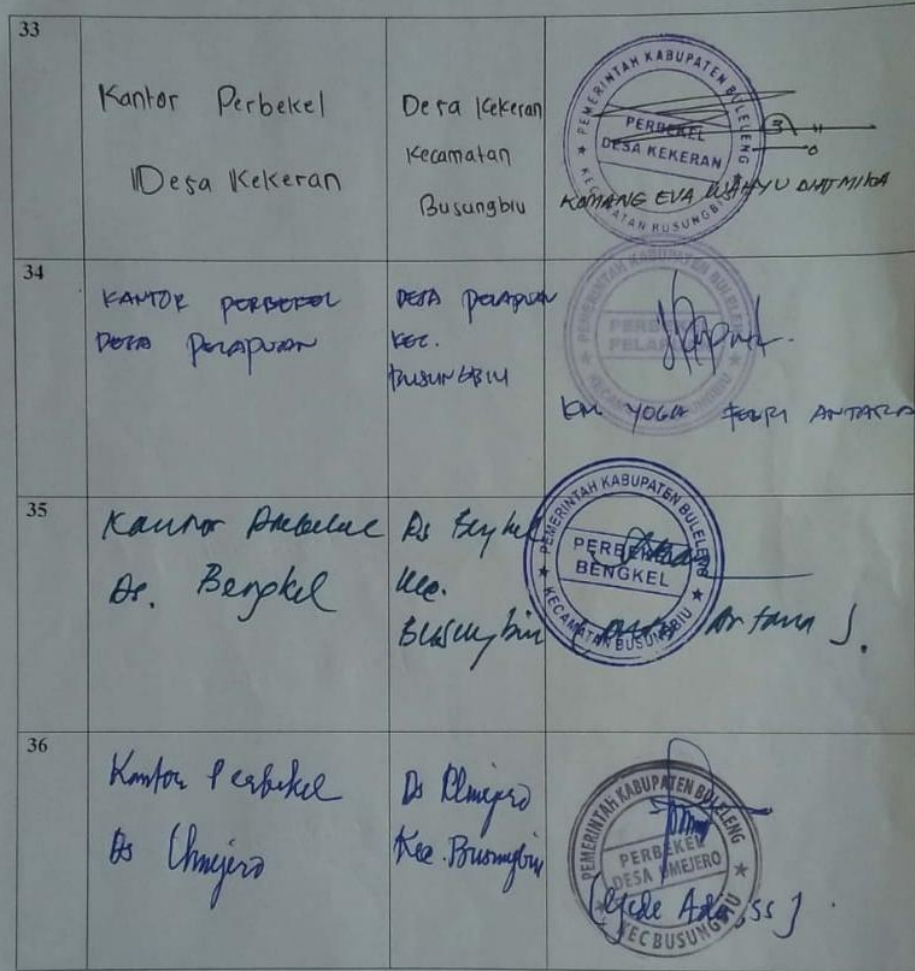 33
Kantor Perbekel
Desa Kekeran
Desa Kekeran
Kecamatan
Busungbiu
PEMERINTAH KABUPATEN BULELENG
PERBEKEL
DESA KEKERAN
KECAMATAN BUSUNGBIU
KOMANG EVA WAHYU DIATMIKA
34
KANTOR PERBEKEL
DESA PELAPUAN
DESA PELAPUAN
KEC.
BUSUNGBIU
PEMERINTAH KABUPATEN BULELENG
PERBEKEL
PELAPUAN
KECAMATAN BUSUNGBIU
KM YOGA FEBRI ANTARA
35
Kantor Perbekel
Ds. Bengkel
Ds Bengkel
Kec.
Busungbiu
PEMERINTAH KABUPATEN BULELENG
PERBEKEL
BENGKEL
KECAMATAN BUSUNGBIU
Artana
36
Kantor Perbekel
Ds Umejero
Ds Umejero
Kec. Busungbiu
PEMERINTAH KABUPATEN BULELENG
PERBEKEL
DESA UMEJERO
KEC BUSUNGBIU
(Gede